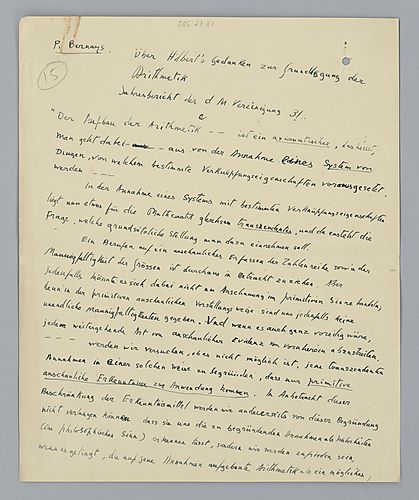 005-27-01
P. Bernays. Über Hilbert's Gedanken zur Grundlegung der
Arithmetik
15
Jahresbericht der d M Vereinigung 31.
"Der Aufbau der Arithmetik -- ist ein axiomatischer, das heisst,
man geht dabei -- aus von der Annahme eines System von
Dingen, von welchem bestimmte Verknüpfungseigenschaften vorausgesetzt
werden ---
In der Annahme eines Systems mit bestimmten Verknüpfungseigenschaften
liegt nun etwas für die Mathematik gleichsam transzendentes, und da entsteht die
Frage, welche grundsätzliche Stellung man dazu einnehmen soll.
Ein Berufen auf ein anschauliches Erfassen der Zahlenreihe sowie der
Mannigfaltigkeit der Grössen ist durchaus in Betracht zu ziehen. Aber
jedenfalls könnte es sich dabei nicht um Anschauung im primitiven Sinne handeln,
denn in der primitiven anschaulichen Vorstellungsweise sind uns jedenfalls keine
unendliche Mannigfaltigkeiten gegeben. Und wenn es auch ganz voreilig wäre,
jedem weitergehende Art von anschaulicher Evidenz von vornherein abzustreiten.
--- werden wir versuchen, ob es nicht möglich ist, jene transzendenten
Annahmen in einer solchen Weise zu begründen, dass nur primitive
anschauliche Erkenntnisse zur Anwendung kommen. In Anbetracht dieser
Beschränkung der Erkenntnismittel werden wir andererseits von dieser Begründung
nicht verlangen können dass sie uns die zu begründenden Annahmen als Wahrheiten
(im philosophischen Sinn) erkennen lässt, sondern wir werden zufrieden sein,
wenn es gelingt, die auf jene Annahmen aufgebaute Arithmetik als ein mögliches,